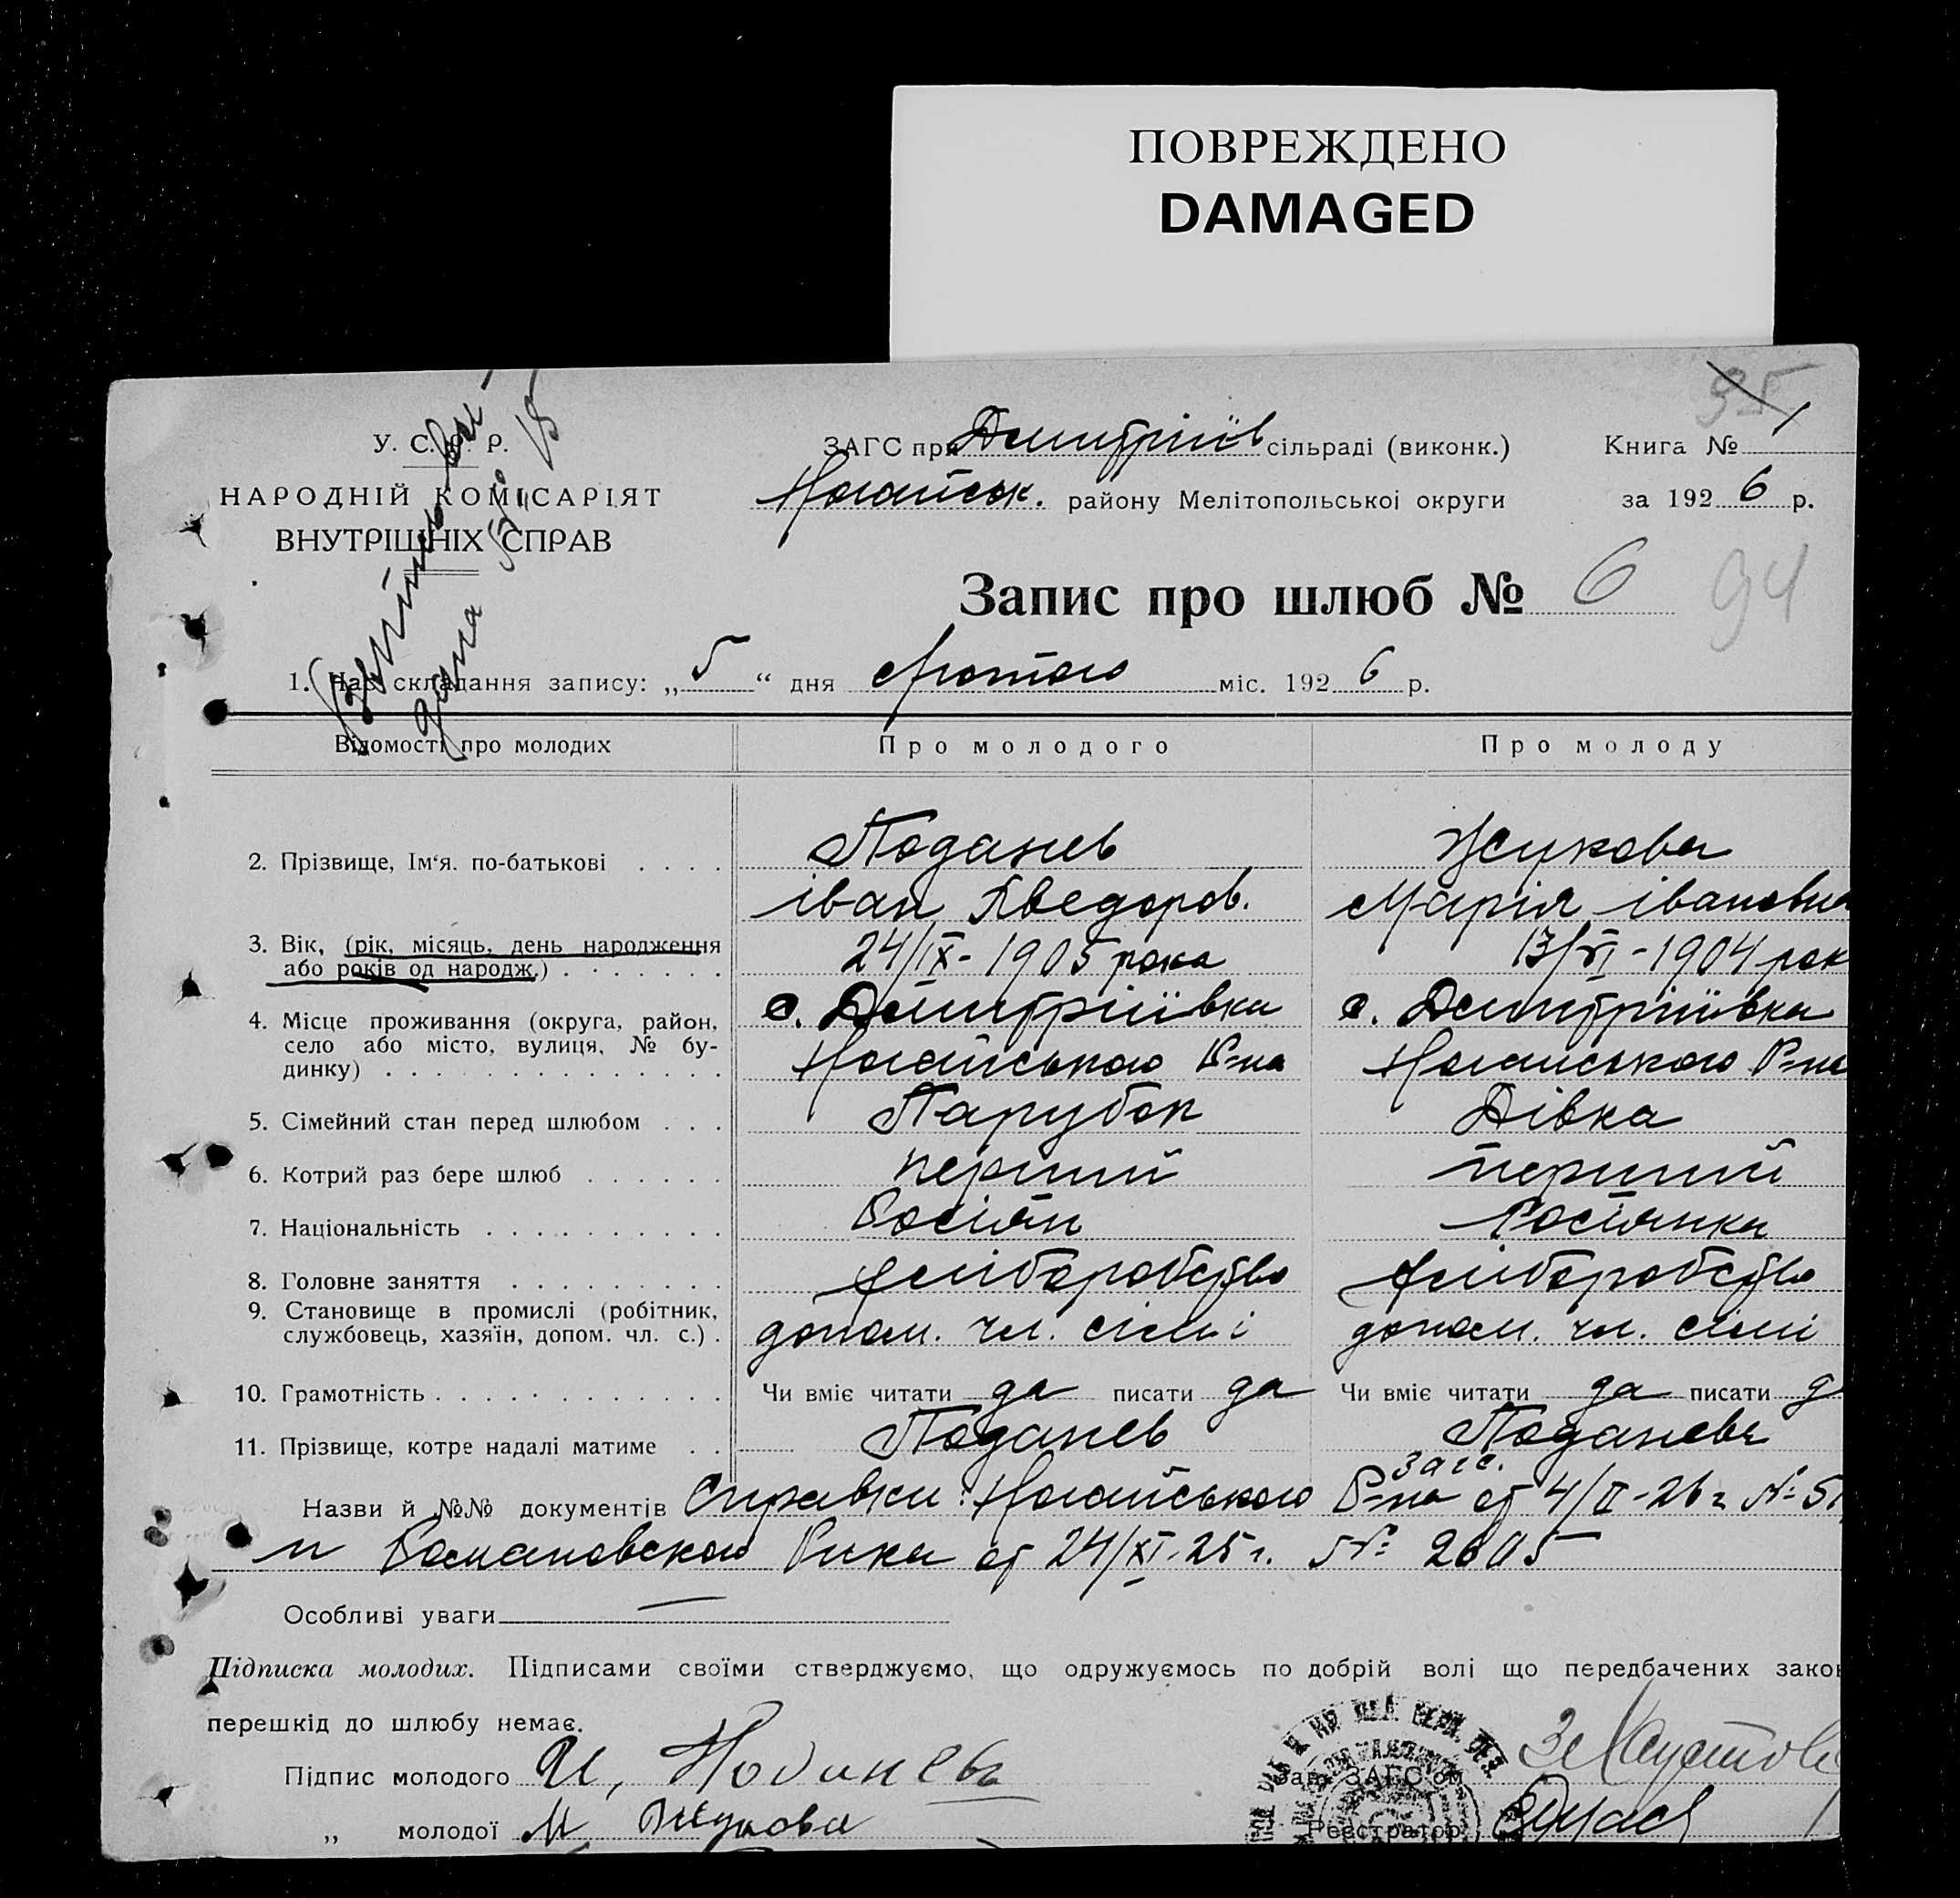 ПОВРЕЖДЕНО
DAMAGED
95
У. С. Р. Р.
НАРОДНІЙ КОМІСАРІЯТ
ВНУТРІШНІХ СПРАВ
ЗАГС при Дмитріїв сільраді (виконк.)
Ногайськ. району Мелітопольської округи
Книга № 1
за 1926 р.
Запис про шлюб № 6
94
1. Час складання запису: „5“ дня Лютого міс. 1926 р.
Відомості про молодих Про молодого Про молоду
2. Прізвище, Ім‘я. по-батькові . . . . Поданев Жукова
іван Хведоров. Марія івановна
3. Вік, (рік, місяць, день народження 24/IX - 1905 рока 13/VI - 1904 рок
або років од народж.) . . . . . . .
4. Місце проживання (округа, район, с. Дмитріївка с. Дмитріївка
село або місто, вулиця, № бу- Ногайського Р-на Ногайського Р-на
динку) . . . . . . . . . . . . . .
5. Сімейний стан перед шлюбом . . . Парубок Дівка
6. Котрий раз бере шлюб . . . . . . перший перший
7. Національність . . . . . . . . . . Росіян Росіянка
8. Головне заняття . . . . . . . . . хліборобство хліборобство
9. Становище в промислі (робітник, допом. чл. сімі допом. чл. сімі
службовець, хазяїн, допом. чл. с.) .
10. Грамотність . . . . . . . . . . . . Чи вміє читати да писати да Чи вміє читати да писати д
11. Прізвище, котре надалі матиме . . Поданев Поданева
загс.
Назви й №№ документів Справки: Ногайського Р-на от 4/II-26 г № 51
и Романовского Рика от 24/XI-25 г. № 2605
Особливі уваги —
Підписка молодих. Підписами своїми стверджуємо, що одружуємось по добрій волі що передбачених зако
перешкід до шлюбу немає.
Підпис молодого И, Поданевъ
Зав. ЗАГС'ом
„ молодої М Жукова
Реєстратор